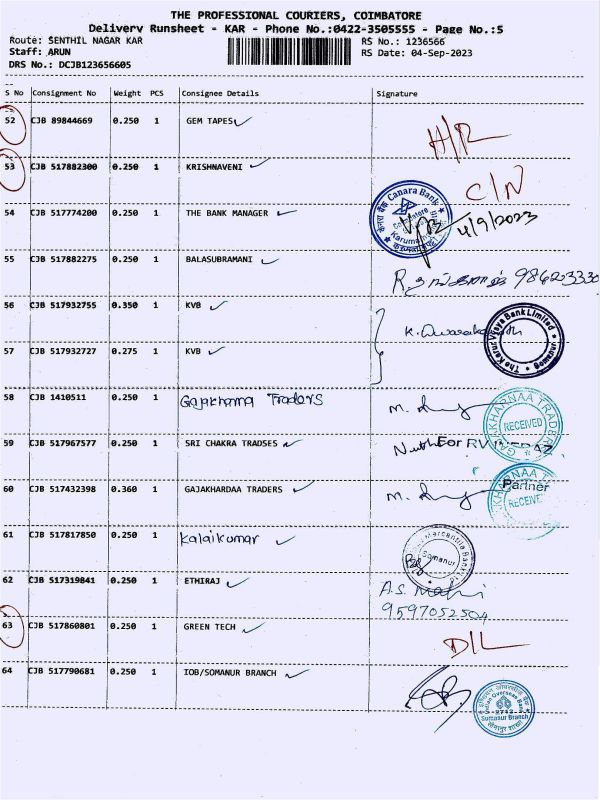 THE PROFESSIONAL COURIERS, COIMBATORE
Delivery Runsheet - KAR - Phone No.:0422-3505555 - Page No.:5
Route: SENTHIL NAGAR KAR RS No.: 1236566
Staff: ARUN RS Date: 04-Sep-2023
DRS No.: DCJB123656605
S No Consignment No Weight PCS Consignee Details Signature
52 CJB 89844669 0.250 1 GEM TAPES H/R
53 CJB 517882300 0.250 1 KRISHNAVENI C/N
54 CJB 517774200 0.250 1 THE BANK MANAGER Canara Bank 4/9/2023
55 CJB 517882275 0.250 1 BALASUBRAMANI
56 CJB 517932755 0.350 1 KVB The Karur Vysya Bank Limited
57 CJB 517932727 0.275 1 KVB Somanur
58 CJB 1410511 0.250 1 Gajakharna Traders GAJAKHARNAA TRADERS RECEIVED
59 CJB 517967577 0.250 1 SRI CHAKRA TRADSES For RV
60 CJB 517432398 0.360 1 GAJAKHARDAA TRADERS Partner RECEIVE
61 CJB 517817850 0.250 1 Kalaikumar Mercantile Bank Ltd Somanur
62 CJB 517319841 0.250 1 ETHIRAJ A.S. Mahi
9597052504
63 CJB 517860801 0.250 1 GREEN TECH D/L
64 CJB 517790681 0.250 1 IOB/SOMANUR BRANCH Indian Overseas Bank Somanur Branch